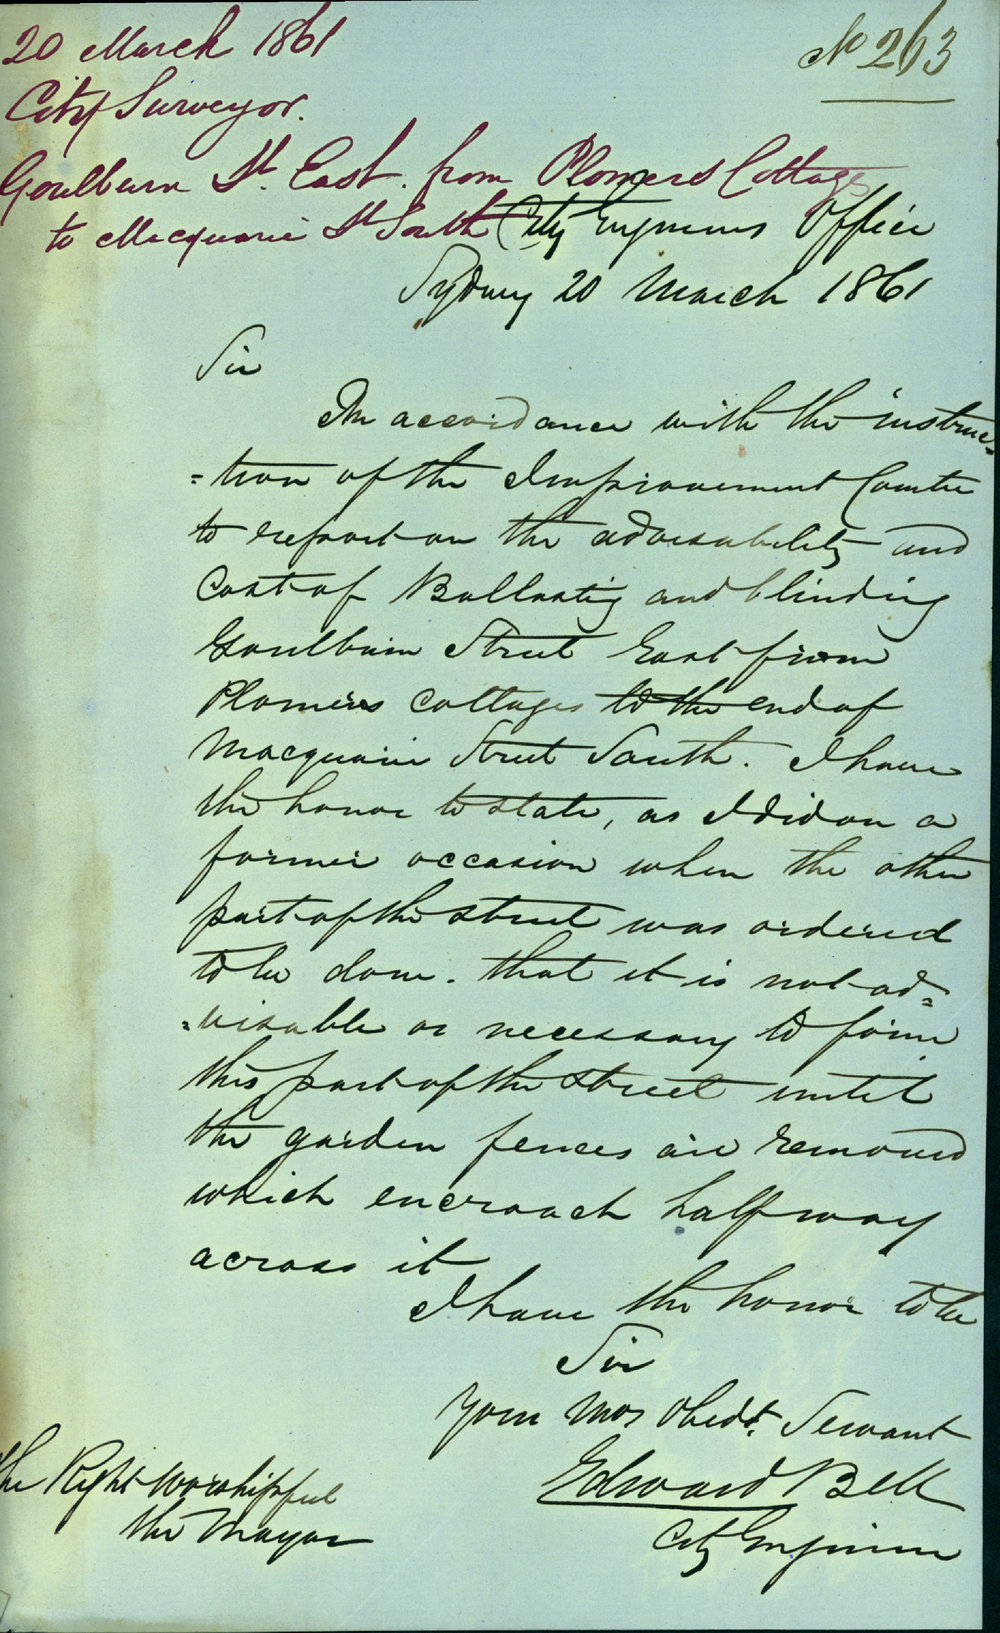 20 March 1861
No 263
City Surveyor.
Goulburn St. East. from Plomers Cottages
to Macquarie St South
City Engineers Office
Sydney 20 March 1861
Sir
In accordance with the instruc-
=tion of the Improvement Comtee
to report on the advisability and
Cost of Ballasting and blinding
Goulburn Street East from
Plomers Cottages to the end of
Macquarie Street South. I have
the honor to state, as I did on a
former occasion when the other
part of the street was ordered
to be done. that it is not ad=
=visable or necessary to form
this part of the street until
the garden fences are removed
which encroach half way
across it
I have the honor to be
Sir
Your Mos Obedt. Servant
Edward Bell
City Engineer
The Right Worshipful
the Mayor